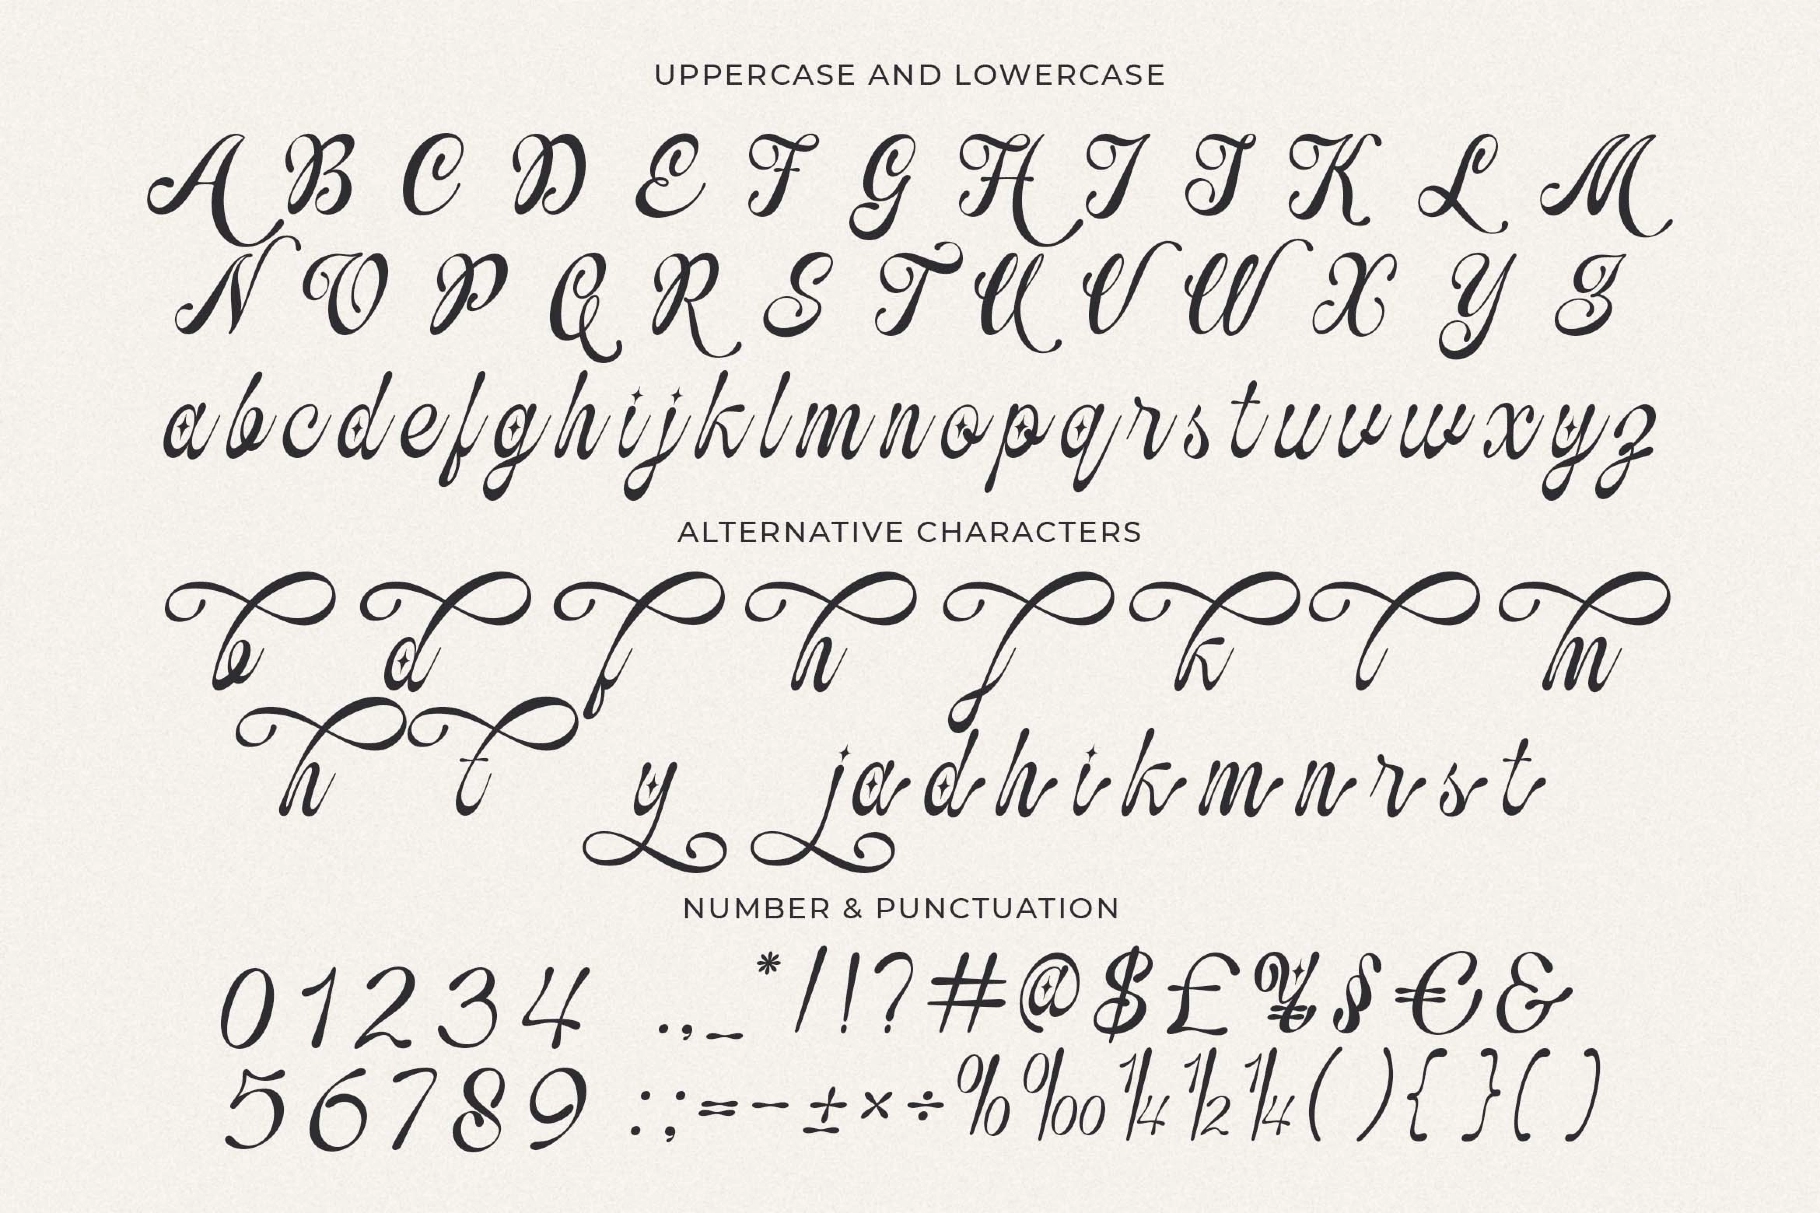 UPPERCASE AND LOWERCASE
A B C D E F G H I J K L M
N O P Q R S T U V W X Y Z
a b c d e f g h i j k l m n o p q r s t u v w x y z
ALTERNATIVE CHARACTERS
b d f h j k l m
n t y j a d h i k m n r s t
NUMBER & PUNCTUATION
0 1 2 3 4 . , _ * / ! ? # @ $ £ ¥ § € &
5 6 7 8 9 : ; = - ± × ÷ % ‰ ¼ ½ ¼ ( ) { } [ ]